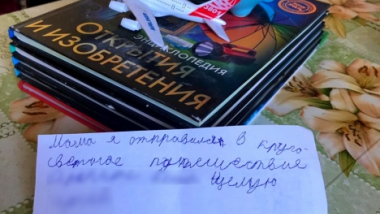 ЭНЦИКЛОПЕДИЯ
ОТКРЫТИЯ
И ИЗОБРЕТЕНИЯ
Мама я отправился в круго-
светное путешествие
Целую